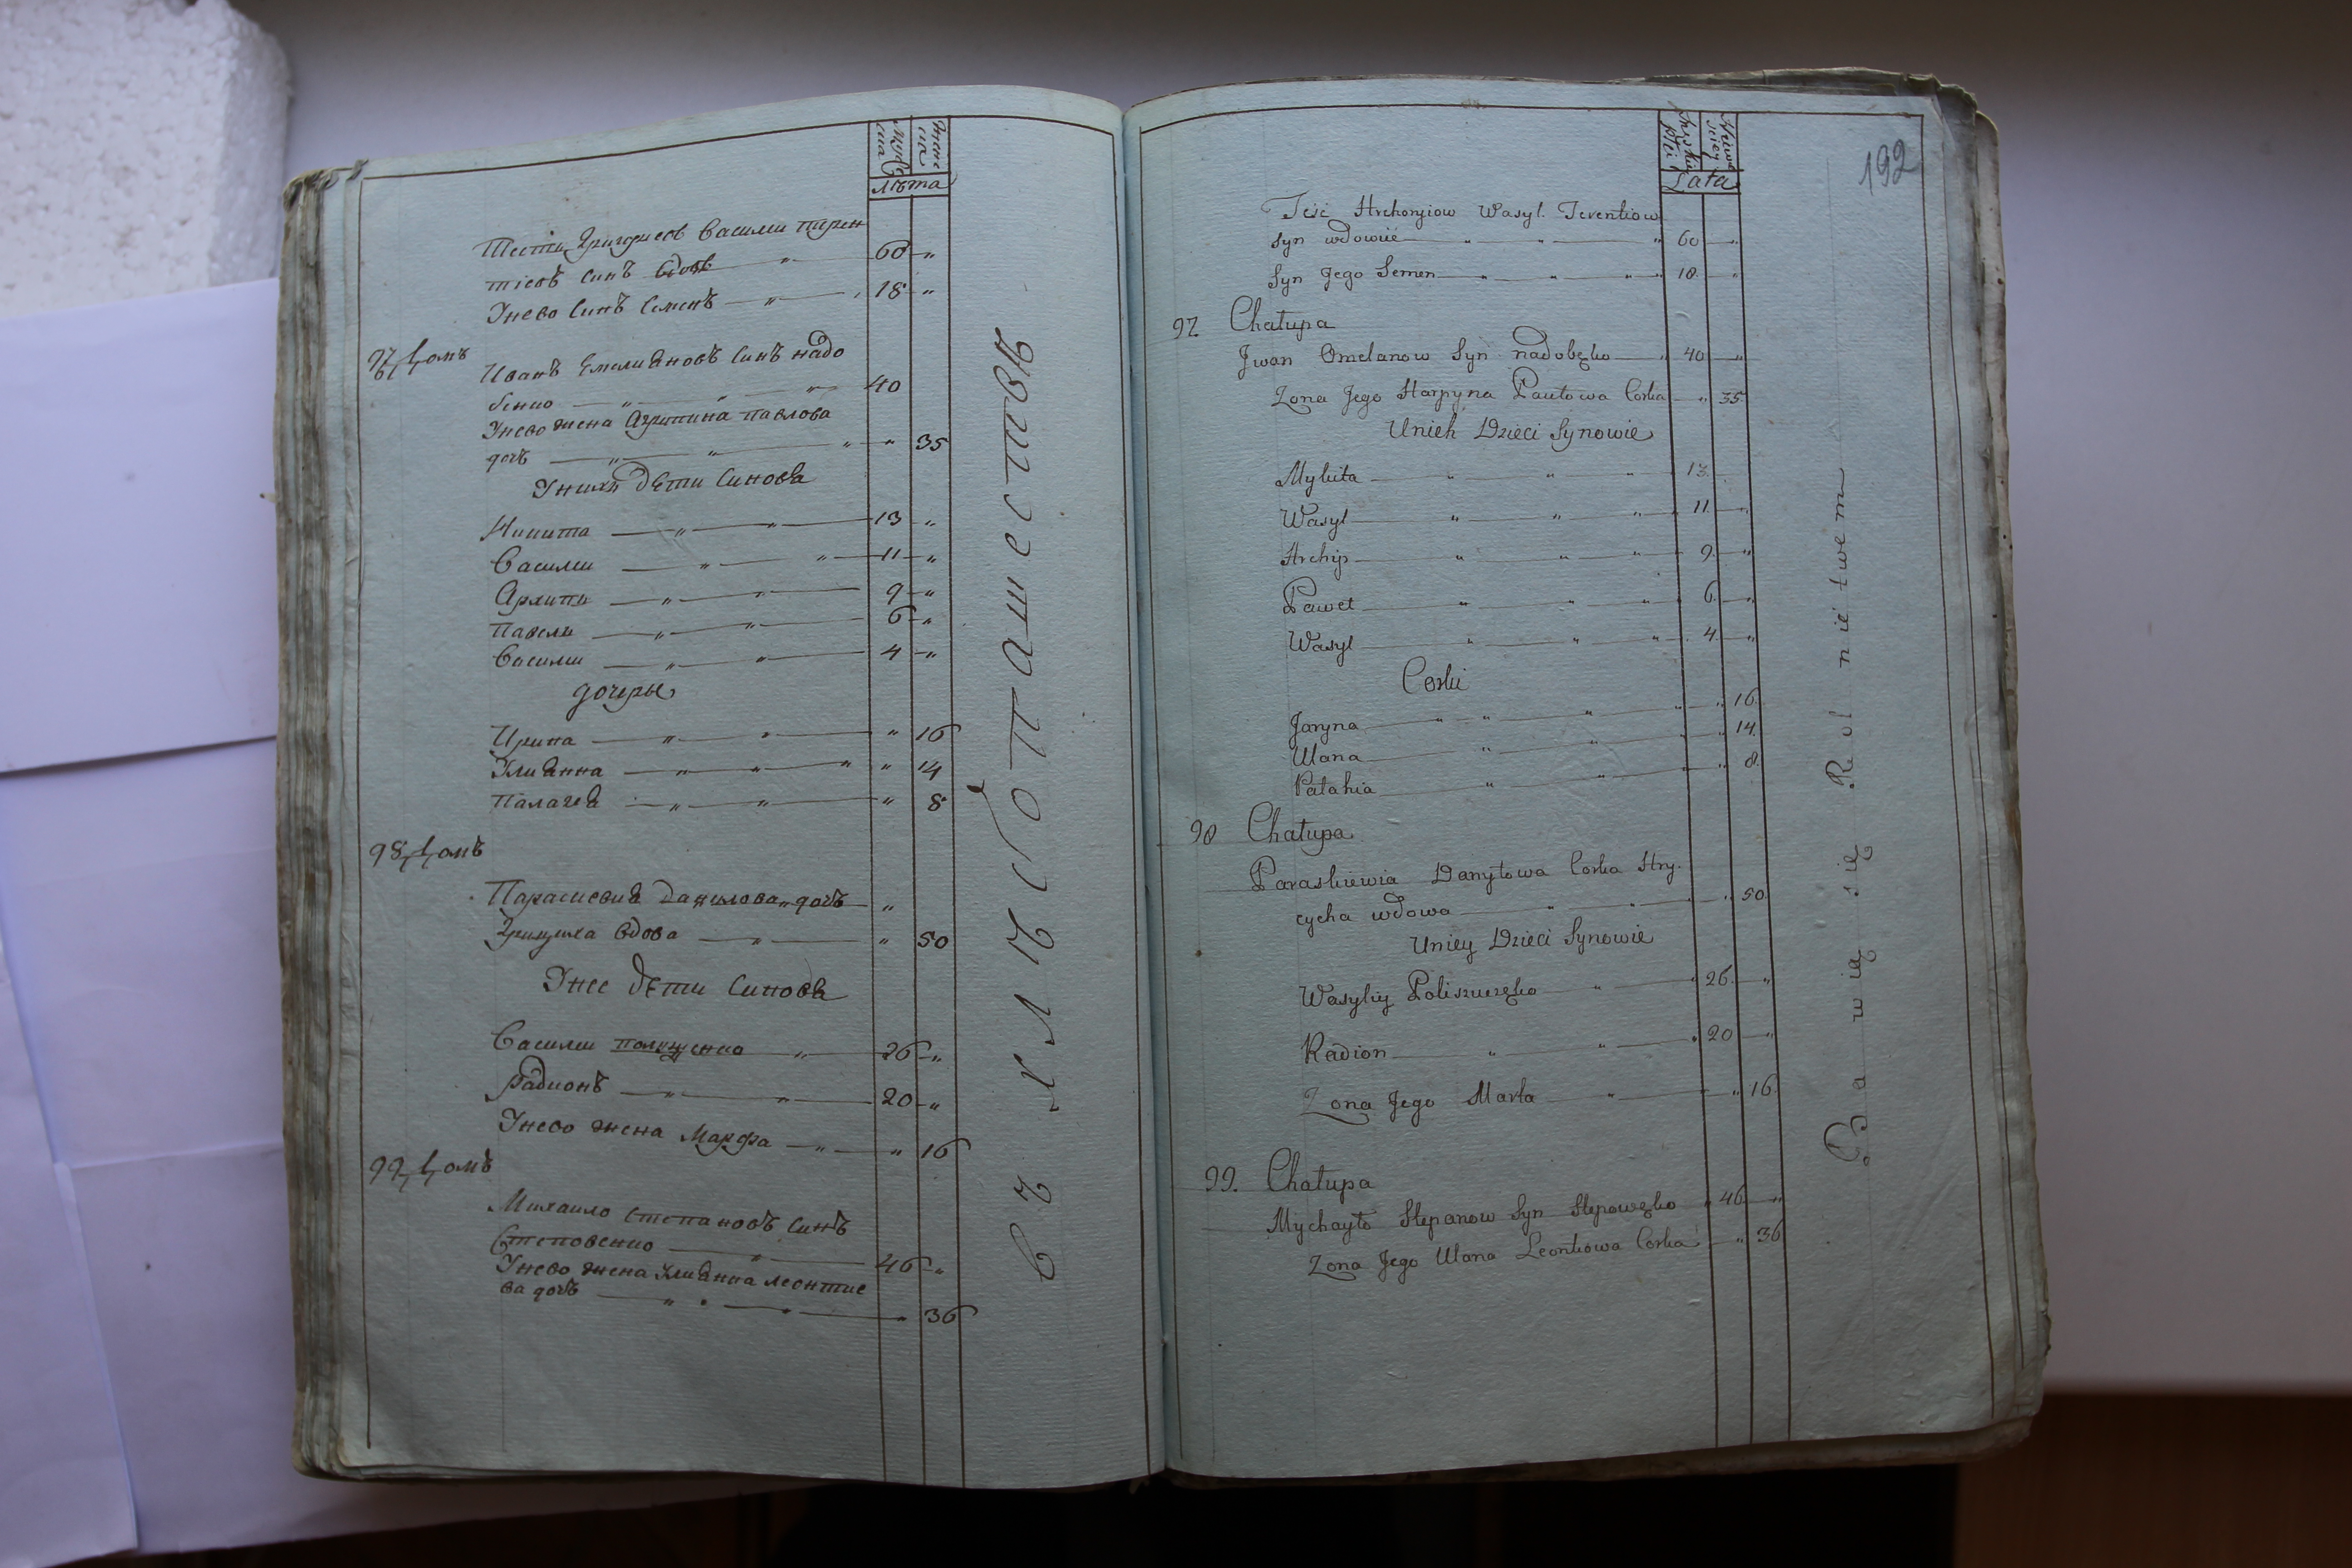 Мужеска
Женска
лѣта
Тесть Григориев Василий Терен
тіевъ синъ вдовъ " 60 "
Унево Синъ Семенъ " 18 "
97 Домъ
Иванъ Емелияновъ Синъ надо
бенко " " " 40
Унево жена Агрипина павлова
дочъ " " " " 35
Унихъ дѣти Синова
Никита " " 13 "
Василии " " 11 "
Архипъ " " 9 "
Павелъ " " 6 "
Василии " " 4 "
дочеры
Ирина " " " 16
Улиянна " " " " 14
Палагея " " " 8
98 Домъ
Параскевия Данилова дочъ "
Грициха вдова " " 50
Унее дѣти Синова
Василии полищенко " 26 "
Радионъ " " 20 "
Унево жена Марфа " " 16
99 Домъ
Михаило Степановъ Синъ
Степовенко " 46 "
Унево жена Улиянна леонтие
ва дочъ " " " 36
хлибопашеством
192
Męzkiey Płci
Lata
Teść Hrehoryiow Wasyl. Terentiow
Syn wdowiec " " " 60 "
Syn Jego Semen " " " 18 "
97 Chałupa
Jwan Omelanow Syn nadobęko " 40 "
Zona Jego Harpyna Pawłowa Corka " 35
Unich Dzieci Synowie
Mykita " " " 13
Wasyl " " " 11 "
Archip " " " 9 "
Paweł " " " 6 "
Wasyl " " " 4 "
Corki
Jaryna " " " " 16
Ulana " " " 14
Pałahia " " " 8
98 Chałupa
Paraskiewia Danyłowa Corka Hry
cycha wdowa " " " 50
Uniey Dzieci Synowie
Wasyliy Poliszuczęko " " 26 "
Radion " " " 20 "
Zona Jego Marta " " 16
99. Chałupa
Mychayło Stepanow Syn Stepowęko " 46 "
Zona Jego Ulana Leontiowa Corka " 36
Bawią się Rolnictwem